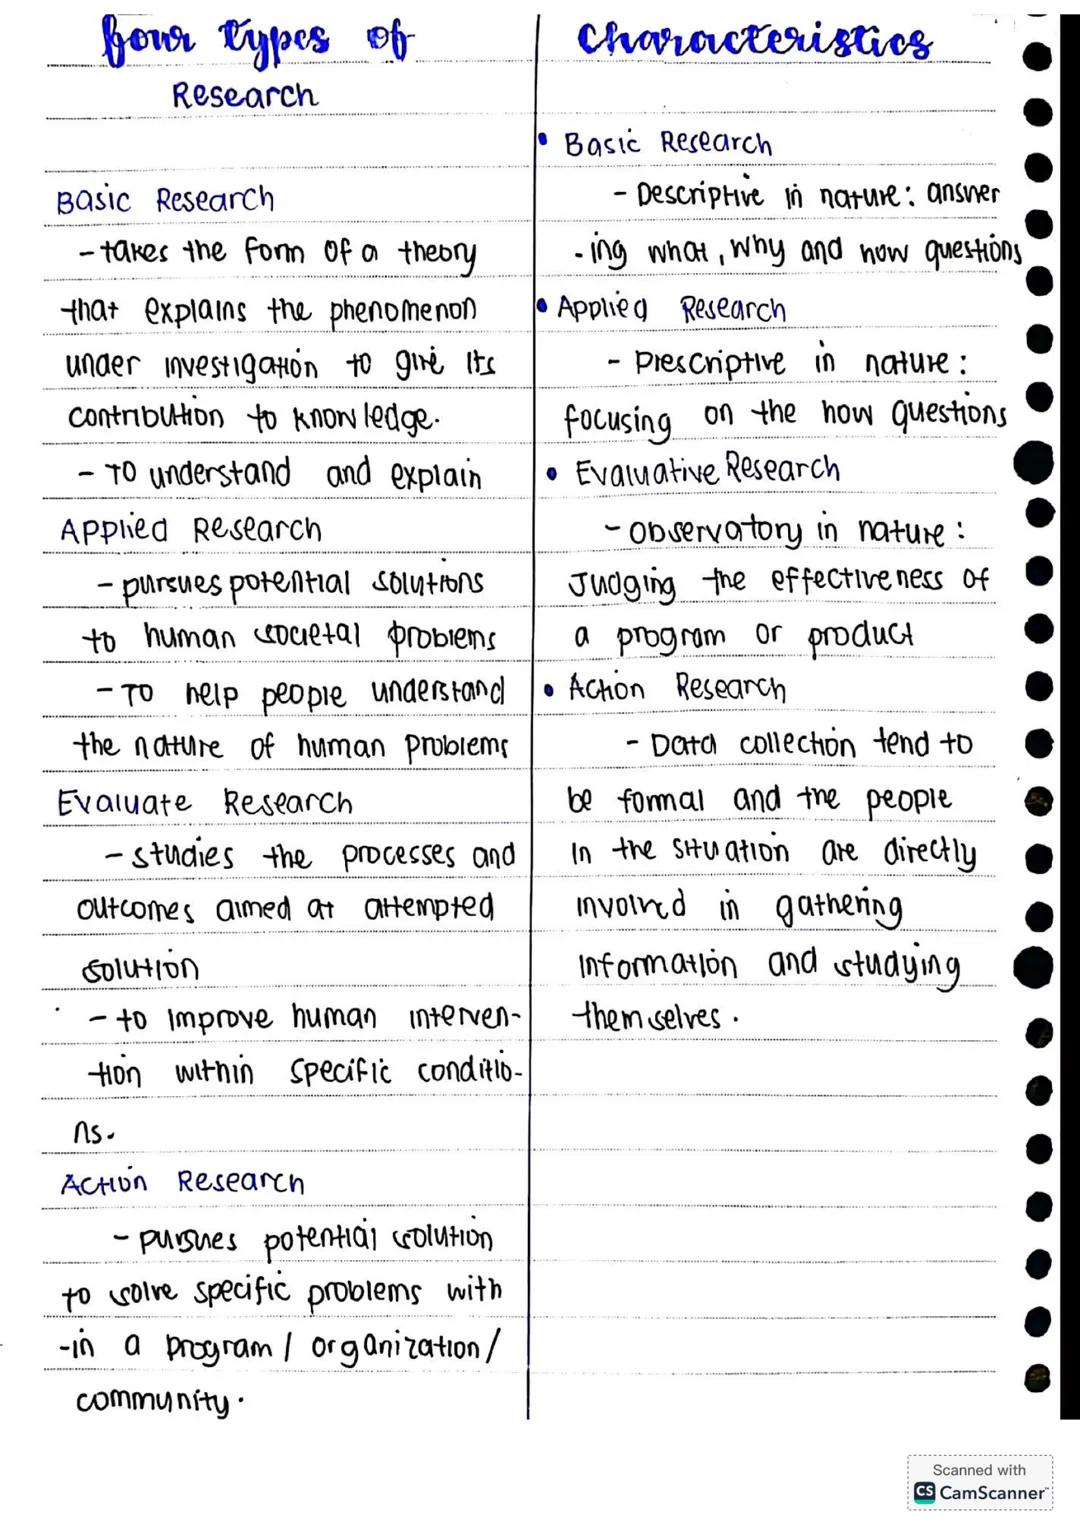 four types of
Research
Basic Research
- takes the form of a theory
that explains the phenomenon
under investigation to give its
contribution to knowledge.
- To understand and explain
Applied Research
- pursues potential solutions
to human societal problems
- To help people understand
the nature of human problems
Evaluate Research
- studies the processes and
outcomes aimed at attempted
solution
- to improve human interven-
tion within specific conditio-
ns.
Action Research
- pursues potential solution
to solve specific problems with
-in a program / organization /
community.
Characteristics
• Basic Research
- Descriptive in nature: answer
-ing what, why and how questions
• Applied Research
- Prescriptive in nature:
focusing on the how questions
• Evaluative Research
- Observatory in nature:
Judging the effectiveness of
a program or product
• Action Research
- Data collection tend to
be formal and the people
in the situation are directly
involved in gathering
information and studying
themselves.
Scanned with
CS CamScanner